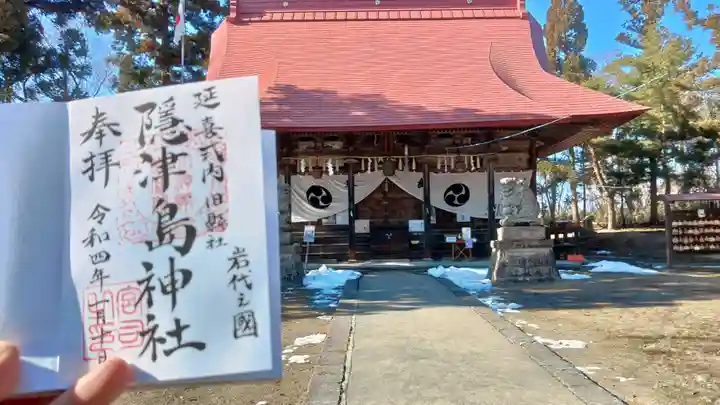 延喜式内 旧縣社
岩代之國
隠津島神社
奉拝
令和四年